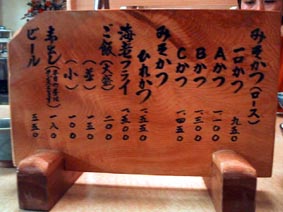 みそかつ(ロース)
一口かつ 九五〇
Aかつ 一一〇〇
Bかつ 一三〇〇
Cかつ 一四五〇
みそかつ
ひれかつ 一五五〇
海老フライ 一五〇〇
ご飯(大盛) 二〇〇
(並) 一五〇
(小) 一〇〇
赤だし 一八〇
ビール 五五〇